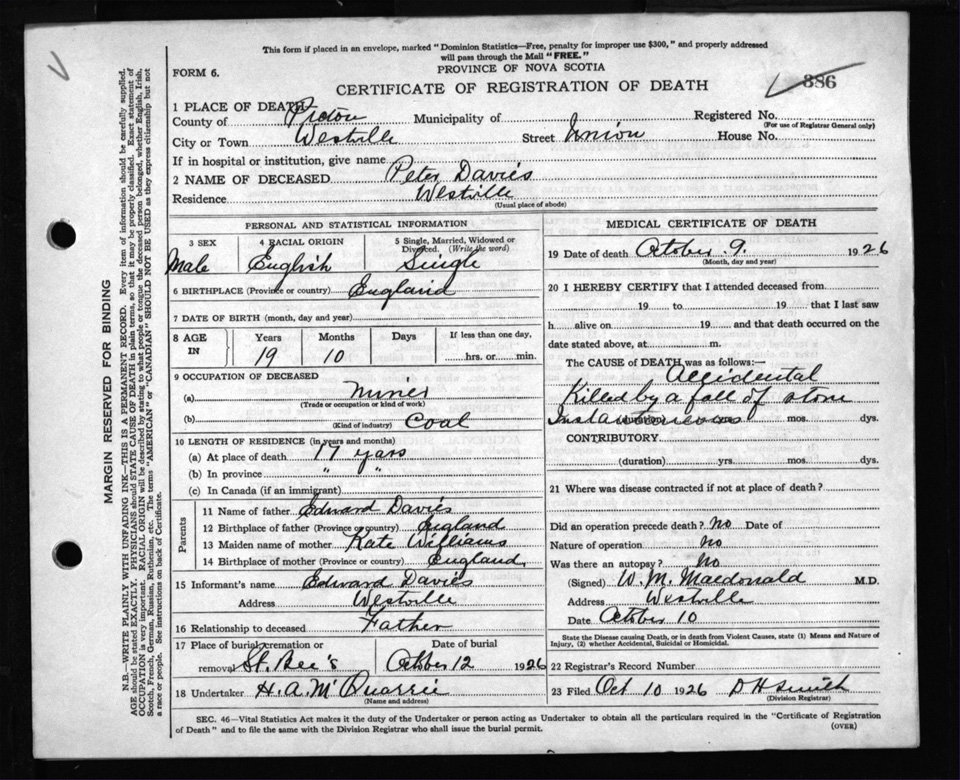 This form if placed in an envelope, marked "Dominion Statistics—Free, penalty for improper use $300," and properly addressed
will pass through the Mail "FREE."
PROVINCE OF NOVA SCOTIA
FORM 6.
CERTIFICATE OF REGISTRATION OF DEATH
386
1 PLACE OF DEATH
County of Pictou Municipality of Registered No.
(For use of Registrar General only)
City or Town Westville Street Union House No.
If in hospital or institution, give name
2 NAME OF DECEASED Peter Davies
Residence Westville
(Usual place of abode)
PERSONAL AND STATISTICAL INFORMATION
3 SEX 4 RACIAL ORIGIN 5 Single, Married, Widowed or Divorced. (Write the word)
Male English Single
6 BIRTHPLACE (Province or country) England
7 DATE OF BIRTH (month, day and year)
8 AGE IN Years Months Days If less than one day,
19 10 hrs. or min.
9 OCCUPATION OF DECEASED
(a)
(Trade or occupation or kind of work)
(b) Coal
(Kind of industry)
10 LENGTH OF RESIDENCE (in years and months)
(a) At place of death 17 years
(b) In province " "
(c) In Canada (if an immigrant)
Parents
11 Name of father Edward Davies
12 Birthplace of father (Province or country) England
13 Maiden name of mother Kate Williams
14 Birthplace of mother (Province or country) England
15 Informant's name Edward Davies
Address Westville
16 Relationship to deceased Father
17 Place of burial, cremation or Date of burial
removal St. Bee's October 12 1926
18 Undertaker H. A. McQuarrie
(Name and address)
MEDICAL CERTIFICATE OF DEATH
19 Date of death October 9. 1926
(Month, day and year)
20 I HEREBY CERTIFY that I attended deceased from
19 to 19 that I last saw
h alive on 19 and that death occurred on the
date stated above, at m.
The CAUSE of DEATH was as follows:
Accidental
Killed by a fall of stone
Instantaneous
(duration) yrs. mos. dys.
CONTRIBUTORY
(duration) yrs. mos. dys.
21 Where was disease contracted if not at place of death?
Did an operation precede death? No Date of
Nature of operation No
Was there an autopsy? No
(Signed) W. M. Macdonald M.D.
Address Westville
Date October 10
State the Disease causing Death, or in death from Violent Causes, state (1) Means and Nature of
Injury, (2) whether Accidental, Suicidal or Homicidal.
22 Registrar's Record Number
23 Filed Oct 10 1926 D H Smith
(Division Registrar)
SEC. 46—Vital Statistics Act makes it the duty of the Undertaker or person acting as Undertaker to obtain all the particulars required in the "Certificate of Registration
of Death" and to file the same with the Division Registrar who shall issue the burial permit.
(OVER)
MARGIN RESERVED FOR BINDING
N.B.—WRITE PLAINLY WITH UNFADING INK—THIS IS A PERMANENT RECORD. Every item of information should be carefully supplied.
AGE should be stated EXACTLY. PHYSICIANS should STATE CAUSE OF DEATH in plain terms, so that it may be properly classified. Exact statement of
OCCUPATION is very important. RACIAL ORIGIN will be described by stating to what people or tongue the deceased person belonged, whether English, Irish,
Scotch, French, German, Russian, Ruthenian, etc. The terms "AMERICAN" or "CANADIAN" SHOULD NOT BE USED as they express citizenship but not
a race or people. See instructions on back of Certificate.